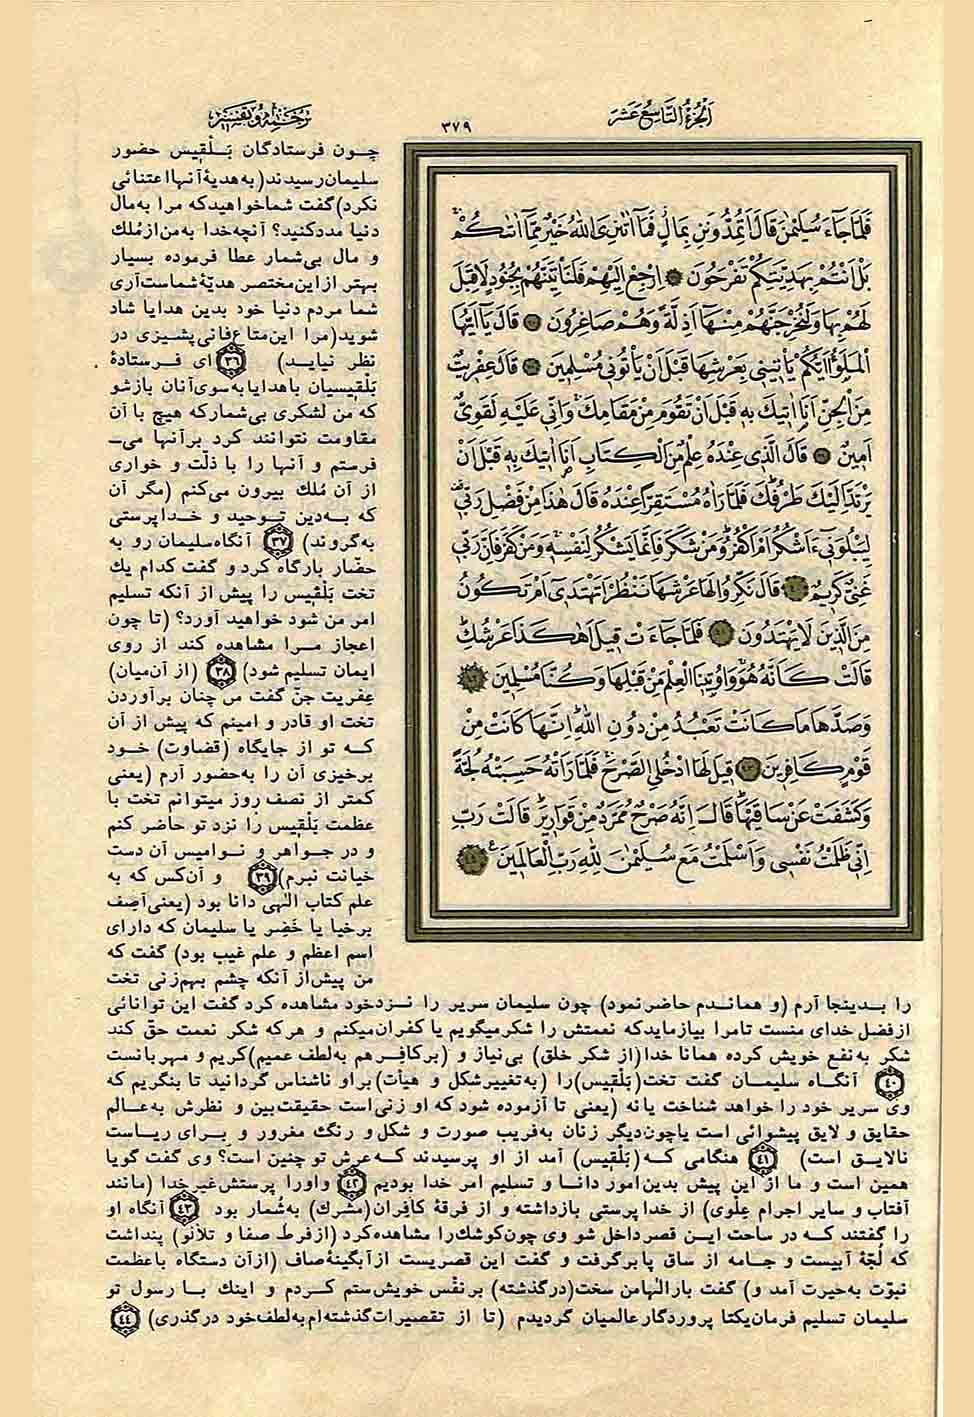 اَلْجُزْءُ التَّاسِعُ عَشَرَ
٣٧٩
ترجمه و تفسیر
فَلَمَّا جَاءَ سُلَيْمٰنَ قَالَ اَتُمِدُّونَنِ بِمَالٍ فَمَا اٰتٰينِيَ اللّٰهُ خَيْرٌ مِمَّا اٰتٰيكُمْ
بَلْ اَنْتُمْ بِهَدِيَّتِكُمْ تَفْرَحُونَ اِرْجِعْ اِلَيْهِمْ فَلَنَأْتِيَنَّهُمْ بِجُنُودٍ لَا قِبَلَ
لَهُمْ بِهَا وَلَنُخْرِجَنَّهُمْ مِنْهَا اَذِلَّةً وَهُمْ صَاغِرُونَ قَالَ يَا اَيُّهَا
الْمَلَؤُا اَيُّكُمْ يَأْتِينِي بِعَرْشِهَا قَبْلَ اَنْ يَأْتُونِي مُسْلِمِينَ قَالَ عِفْرِيتٌ
مِنَ الْجِنِّ اَنَا اٰتِيكَ بِهِ قَبْلَ اَنْ تَقُومَ مِنْ مَقَامِكَ وَاِنِّي عَلَيْهِ لَقَوِيٌّ
اَمِينٌ قَالَ الَّذِي عِنْدَهُ عِلْمٌ مِنَ الْكِتَابِ اَنَا اٰتِيكَ بِهِ قَبْلَ اَنْ
يَرْتَدَّ اِلَيْكَ طَرْفُكَ فَلَمَّا رَاٰهُ مُسْتَقِرًّا عِنْدَهُ قَالَ هٰذَا مِنْ فَضْلِ رَبِّي
لِيَبْلُوَنِي ءَاَشْكُرُ اَمْ اَكْفُرُ وَمَنْ شَكَرَ فَاِنَّمَا يَشْكُرُ لِنَفْسِهِ وَمَنْ كَفَرَ فَاِنَّ رَبِّي
غَنِيٌّ كَرِيمٌ ٤٠ قَالَ نَكِّرُوا لَهَا عَرْشَهَا نَنْظُرْ اَتَهْتَدِي اَمْ تَكُونُ
مِنَ الَّذِينَ لَا يَهْتَدُونَ ٤١ فَلَمَّا جَاءَتْ قِيلَ اَهٰكَذَا عَرْشُكِ
قَالَتْ كَاَنَّهُ هُوَ وَاُوتِينَا الْعِلْمَ مِنْ قَبْلِهَا وَكُنَّا مُسْلِمِينَ ٤٢
وَصَدَّهَا مَا كَانَتْ تَعْبُدُ مِنْ دُونِ اللّٰهِ اِنَّهَا كَانَتْ مِنْ
قَوْمٍ كَافِرِينَ ٤٣ قِيلَ لَهَا ادْخُلِي الصَّرْحَ فَلَمَّا رَاَتْهُ حَسِبَتْهُ لُجَّةً
وَكَشَفَتْ عَنْ سَاقَيْهَا قَالَ اِنَّهُ صَرْحٌ مُمَرَّدٌ مِنْ قَوَارِيرَ قَالَتْ رَبِّ
اِنِّي ظَلَمْتُ نَفْسِي وَاَسْلَمْتُ مَعَ سُلَيْمٰنَ لِلّٰهِ رَبِّ الْعَالَمِينَ ٤٤
چون فرستادگان بَلْقیس حضور
سلیمان رسیدند (به هدیهٔ آنها اعتنائی
نکرد) گفت شما خواهید که مرا به مال
دنیا مدد کنید؟ آنچه خدا به من از مُلک
و مال بی‌شمار عطا فرموده بسیار
بهتر از این مختصر هدیّهٔ شماست آری
شما مردم دنیا خود بدین هدایا شاد
شوید (مرا این متاع فانی پشیزی در
نظر نیاید) ٣٦ ای فرستادهٔ
بَلْقیسیان با هدایا به سوی آنان بازشو
که من لشکری بی‌شمار که هیچ با آن
مقاومت نتوانند کرد بر آنها می‌ـ
فرستم و آنها را با ذلّت و خواری
از آن مُلک بیرون می‌کنم (مگر آن
که به دین توحید و خداپرستی
به گروند) ٣٧ آنگاه سلیمان رو به
حضّار بارگاه کرد و گفت کدام یك
تخت بَلْقیس را پیش از آنکه تسلیم
امر من شود خواهید آورد؟ (تا چون
اعجاز مرا مشاهده کند از روی
ایمان تسلیم شود) ٣٨ (از آن میان)
عِفریت جنّ گفت من چنان برآوردن
تخت او قادر و امینم که پیش از آن
که تو از جایگاه (قضاوت) خود
برخیزی آن را به حضور آرم (یعنی
کمتر از نصف روز میتوانم تخت با
عظمت بَلْقیس را نزد تو حاضر کنم
و در جواهر و نوامیس آن دست
خیانت نبرم) ٣٩ و آن کس که به
علم کتاب الٰهی دانا بود (یعنی آصِف
برخیا یا خَضِر یا سلیمان که دارای
اسم اعظم و علم غیب بود) گفت که
من پیش از آنکه چشم بهم‌زنی تخت
را بدینجا آرم (و هماندم حاضر نمود) چون سلیمان سریر را نزد خود مشاهده کرد گفت این توانائی
از فضل خدای منست تا مرا بیازماید که نعمتش را شکر میگویم یا کفران میکنم و هر که شکر نعمت حق کند
شکر به نفع خویش کرده همانا خدا (از شکر خلق) بی‌نیاز و (بر کافر هم به لطف عمیم) کریم و مهربانست
٤٠ آنگاه سلیمان گفت تخت (بَلْقیس) را (به تغییر شکل و هیأت) بر او ناشناس گردانید تا بنگریم که
وی سریر خود را خواهد شناخت یا نه (یعنی تا آزموده شود که او زنی است حقیقت‌بین و نظرش به عالم
حقایق و لایق پیشوائی است یا چون دیگر زنان به فریب صورت و شکل و رنگ مغرور و برای ریاست
نالایق است) ٤١ هنگامی که (بَلْقیس) آمد از او پرسیدند که عرش تو چنین است؟ وی گفت گویا
همین است و ما از این پیش بدین امور دانا و تسلیم امر خدا بودیم ٤٢ و او را پرستش غیر خدا (مانند
آفتاب و سایر اجرام عِلْوی) از خداپرستی بازداشته و از فرقهٔ کافِران (مشرك) به شُمار بود ٤٣ آنگاه او
را گفتند که در ساحت این قصر داخل شو وی چون کوشك را مشاهده کرد (از فرط صفا و تلألؤ) پنداشت
که لُجّهٔ آبیست و جامه از ساق پا برگرفت و گفت این قصریست از آبگینهٔ صاف (از آن دستگاه با عظمت
نبوّت به حیرت آمد و) گفت بار الٰها من سخت (در گذشته) بر نفْس خویش ستم کردم و اینك با رسول تو
سلیمان تسلیم فرمان یکتا پروردگار عالمیان گردیدم (تا از تقصیرات گذشته‌ام به لطف خود درگذری) ٤٤